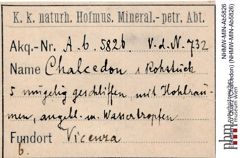 K. k. naturh. Hofmus. Mineral.- petr. Abt.
Akq.-Nr. A. b. 5826 V. d. N. 732
Name Chalcedon 1 Rohstück
5 mugelig geschliffen, mit Hohlräu-
men, angebl. m. Wassertropfen
Fundort Vicenza
b.
NHMW-MIN-Ab5826
(NHMW-MIN-Ab5826)
nhm